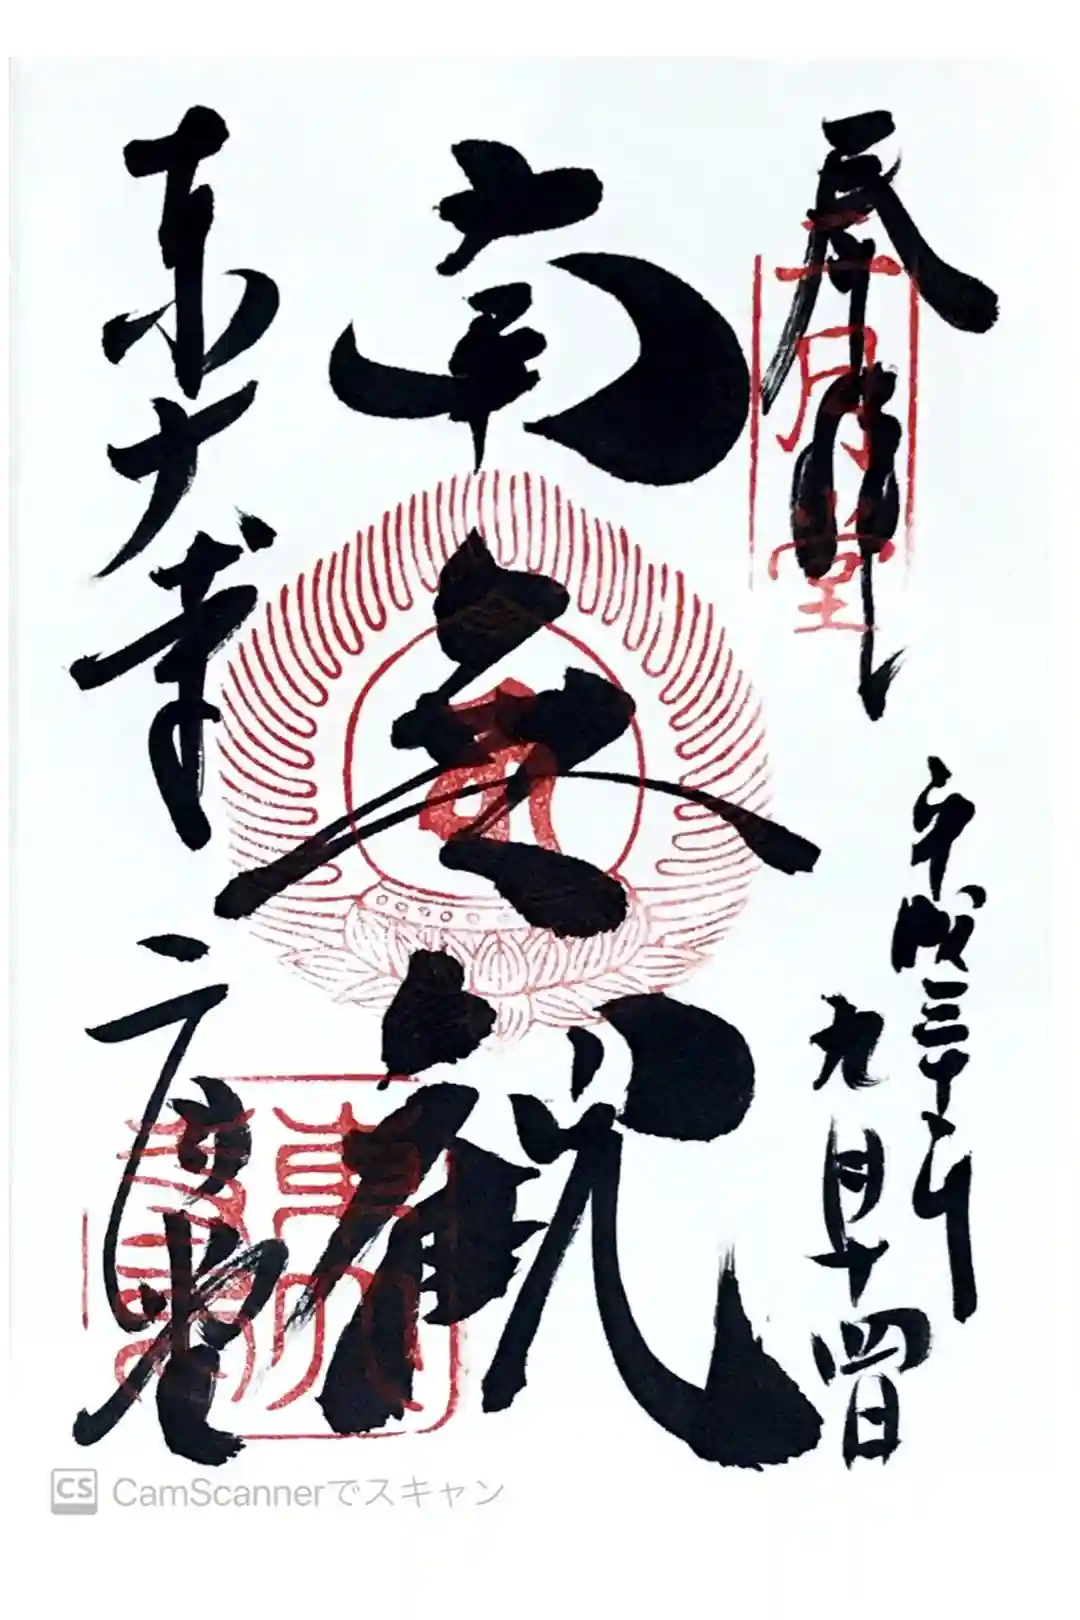 奉拝
二月堂
平成三十年
九月十四日
南無観
東大寺
二月堂
CS CamScannerでスキャン